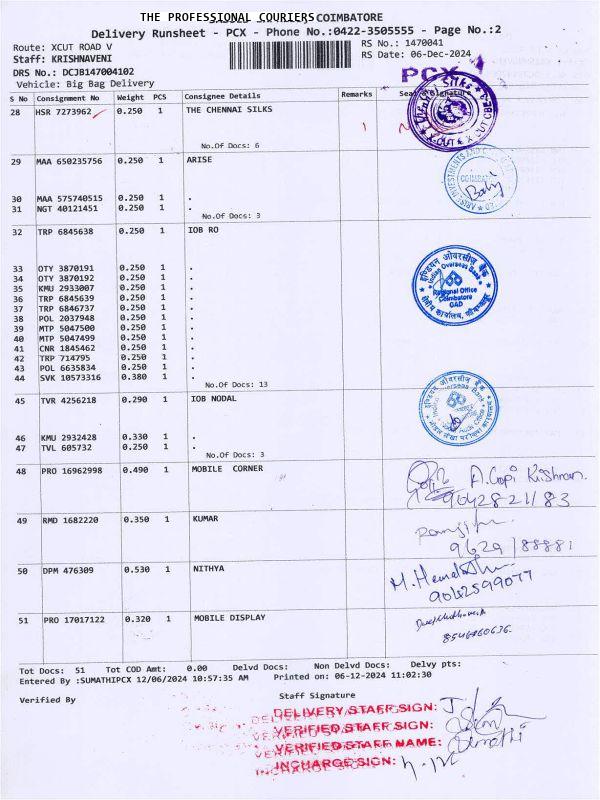 THE PROFESSIONAL COURIERS COIMBATORE
Delivery Runsheet - PCX - Phone No.:0422-3505555 - Page No.:2
Route: XCUT ROAD V
RS No.: 1470041
Staff: KRISHNAVENI
RS Date: 06-Dec-2024
DRS No.: DCJB147004102
PCX
Vehicle: Big Bag Delivery
S No Consignment No Weight PCS Consignee Details Remarks Seal Signature
28 HSR 7273962 0.250 1 THE CHENNAI SILKS
No.Of Docs: 6
29 MAA 650235756 0.250 1 ARISE
30 MAA 575740515 0.250 1 .
31 NGT 40121451 0.250 1 .
No.Of Docs: 3
32 TRP 6845638 0.250 1 IOB RO
33 OTY 3870191 0.250 1 .
34 OTY 3870192 0.250 1 .
35 KMU 2933007 0.250 1 .
36 TRP 6845639 0.250 1 .
37 TRP 6846737 0.250 1 .
38 POL 2037948 0.250 1 .
39 MTP 5047500 0.250 1 .
40 MTP 5047499 0.250 1 .
41 CNR 1845462 0.250 1 .
42 TRP 714795 0.250 1 .
43 POL 6635834 0.250 1 .
44 SVK 10573316 0.380 1 .
No.Of Docs: 13
इण्डियन ओवरसीज़ बैंक
Indian Overseas Bank
Regional Office
Coimbatore
GAD
45 TVR 4256218 0.290 1 IOB NODAL
46 KMU 2932428 0.330 1 .
47 TVL 605732 0.250 1 .
No.Of Docs: 3
48 PRO 16962998 0.490 1 MOBILE CORNER
A.Gopi Krishnan.
9042821183
49 RMD 1682220 0.350 1 KUMAR
9629188881
50 DPM 476309 0.530 1 NITHYA
9042599077
51 PRO 17017122 0.320 1 MOBILE DISPLAY
8546460636.
Tot Docs: 51 Tot COD Amt: 0.00 Delvd Docs: Non Delvd Docs: Delvy pts:
Entered By :SUMATHIPCX 12/06/2024 10:57:35 AM Printed on: 06-12-2024 11:02:30
Verified By
Staff Signature
DELIVERY STAFF SIGN:
VERIFIED STAFF SIGN:
VERIFIED STAFF NAME:
INCHARGE SIGN: